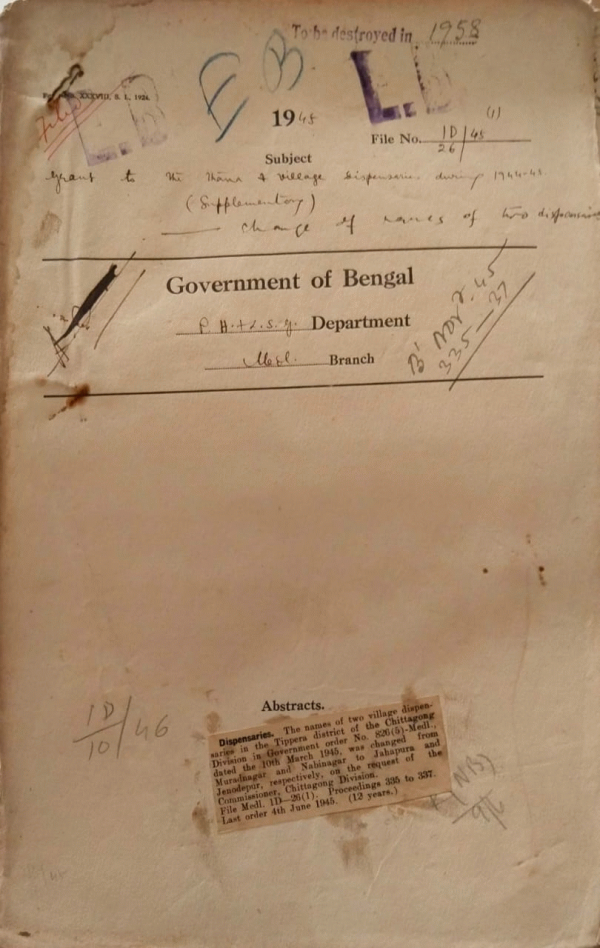 To be destroyed in 1958
E B
L.D
L.D
XXXVIII, S. L. 1924.
Filed
1945
(1)
File No. 1D/26 45
Subject
Grant to the Thana & Village Dispensaries during 1944-45
(Supplementary)
— change of names of two dispensaries
Government of Bengal
P. H. & L. S. G. Department
Medl. Branch
'B' Nov. 45
335—37
Abstracts.
1D/10 46
Dispensaries. The names of two village dispen-
saries in the Tippera district of the Chittagong
Division in Government order No. 826(5)-Medl.,
dated the 10th March 1945, was changed from
Muradnagar and Nabinagar to Jahapura and
Jenodepur, respectively, on the request of the
Commissioner, Chittagong Division.
File Medl. 1D—26(1). Proceedings 335 to 337.
Last order 4th June 1945. (12 years.)